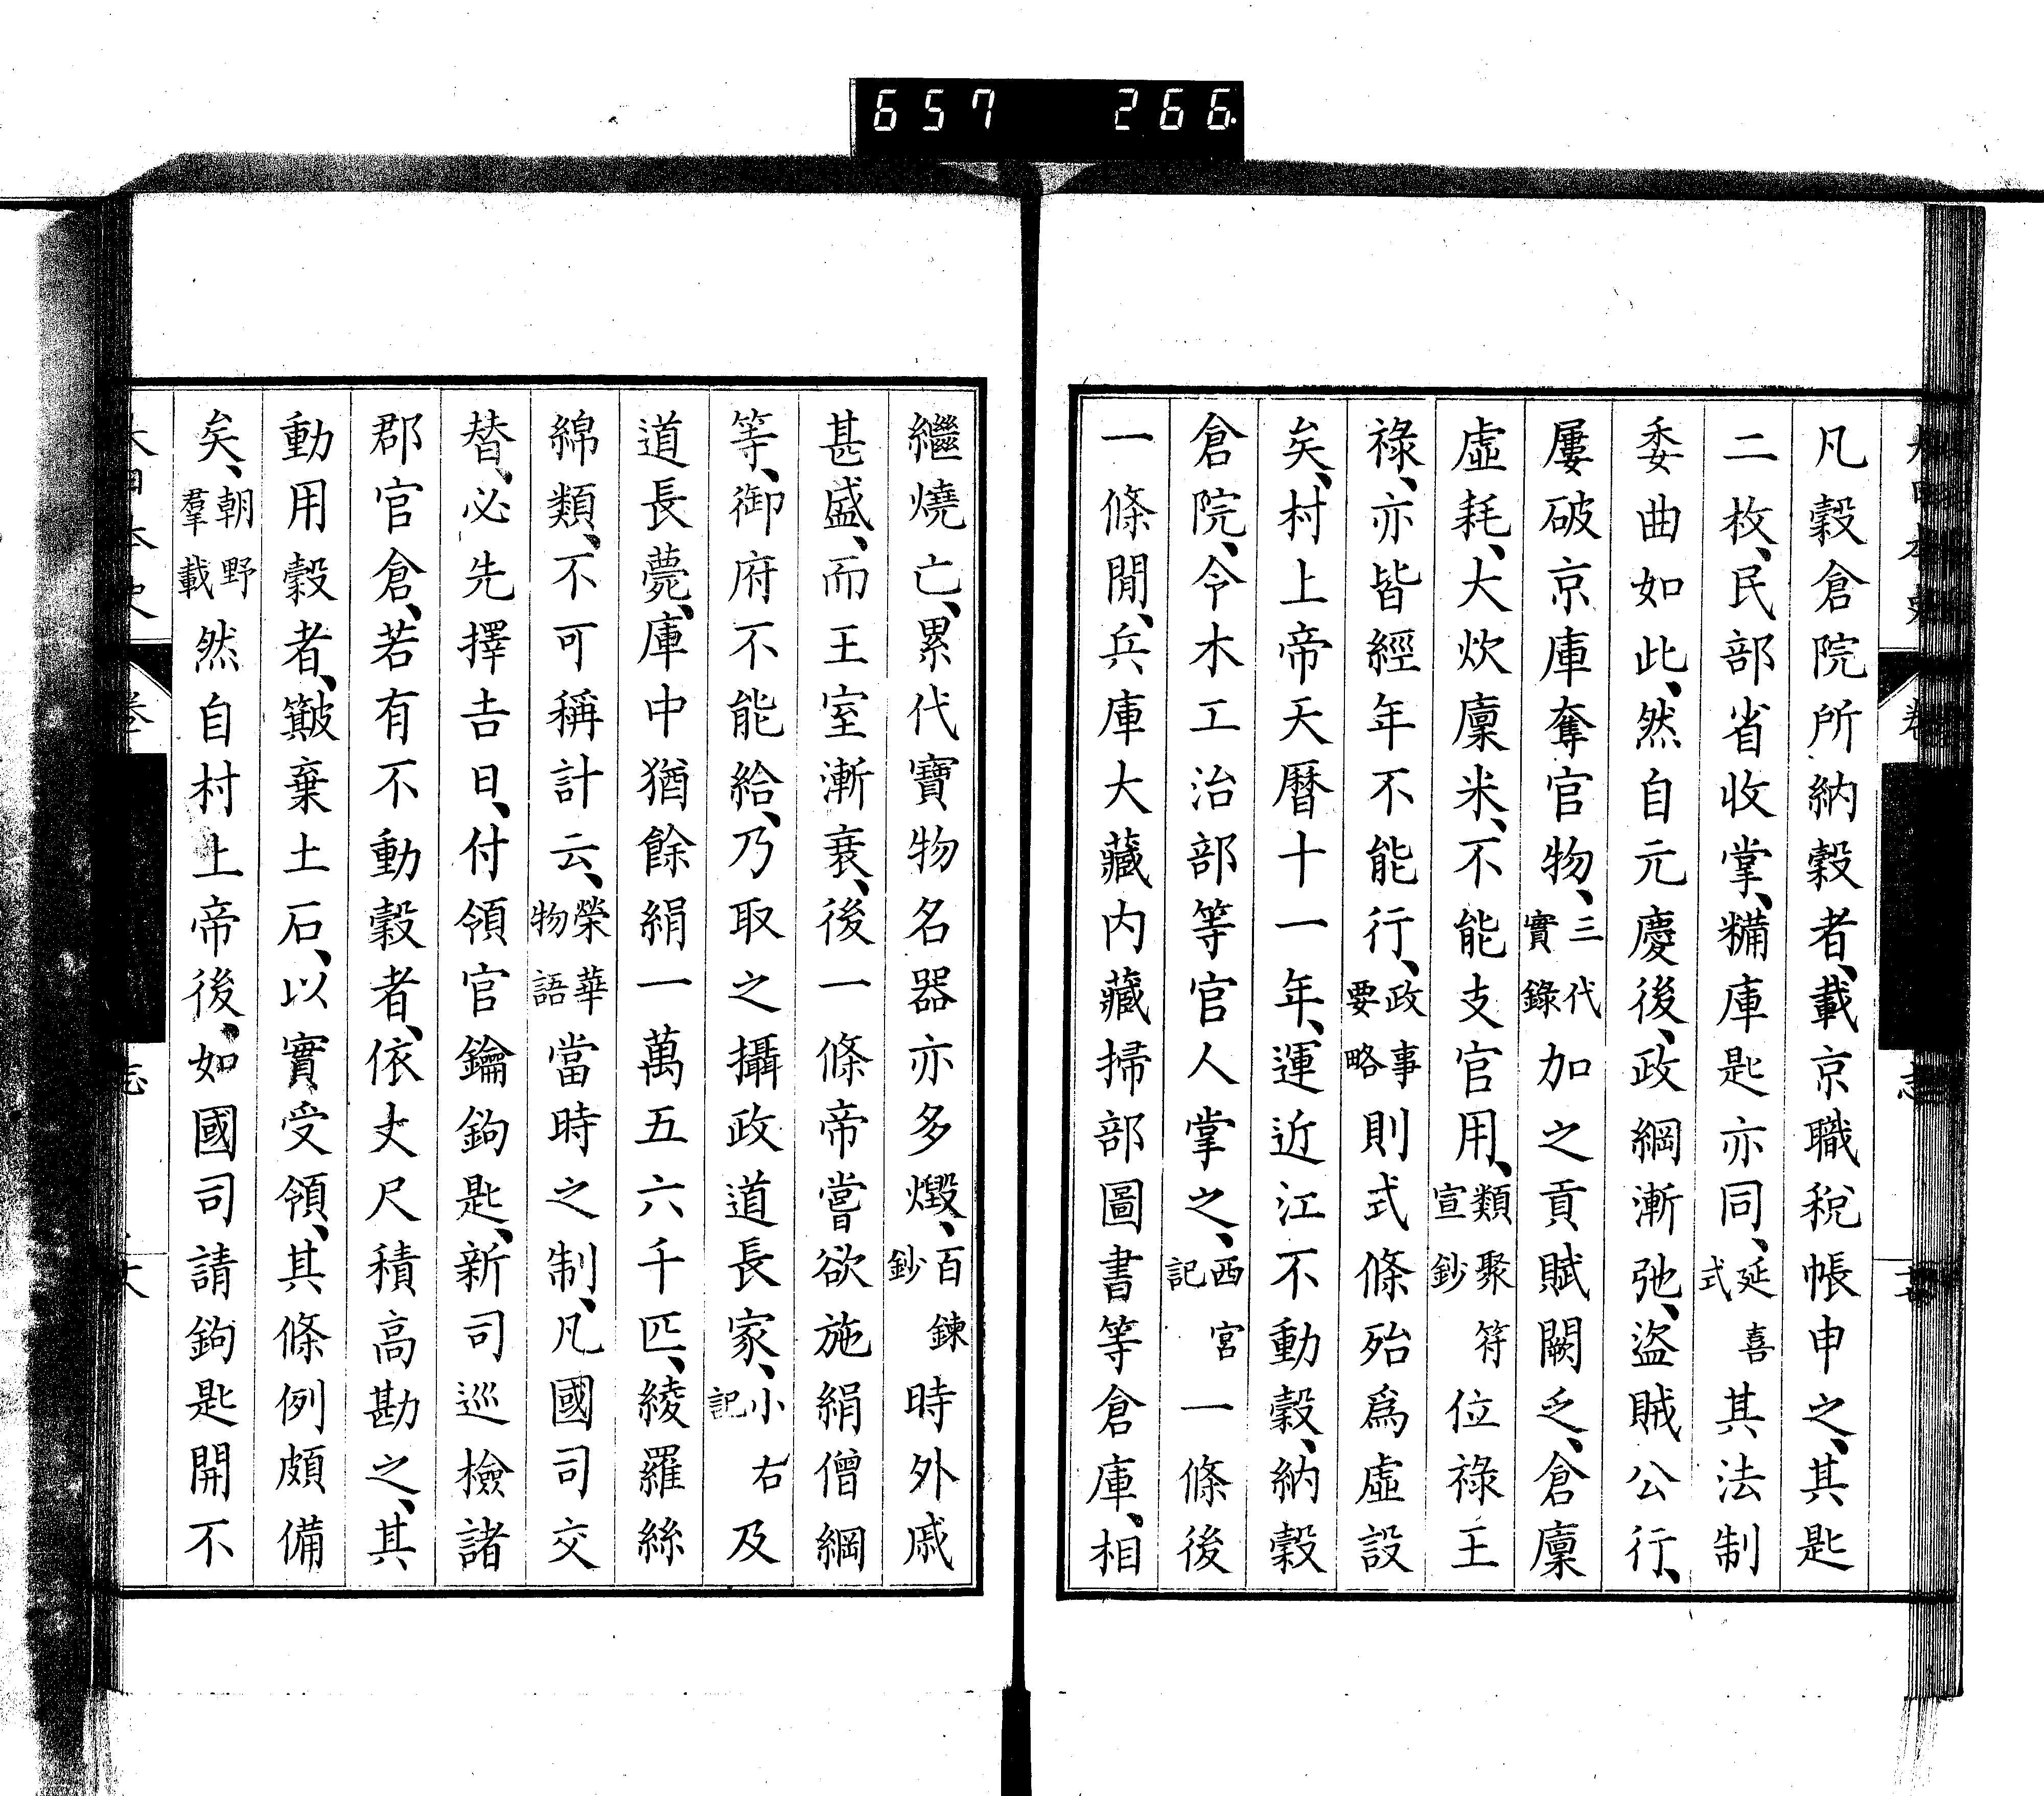 657 266
凡穀倉院所納穀者、載京職稅帳申之、其匙
二枚、民部省收掌、糒庫匙亦同、延喜式其法制
委曲如此、然自元慶後、政綱漸弛、盜賊公行、
屢破京庫奪官物、三代實錄加之貢賦闕乏、倉廩
虛耗、大炊廩米、不能支官用、類聚符宣鈔位祿王
祿、亦皆經年不能行、政事要略則式條殆爲虛設
矣、村上帝天曆十一年、運近江不動穀、納穀
倉院、令木工治部等官人掌之、西宮記一條後
一條閒、兵庫大藏內藏掃部圖書等倉庫、相
繼燒亡、累代寶物名器亦多燬、百鍊鈔時外戚
甚盛、而王室漸衰、後一條帝嘗欲施絹僧綱
等、御府不能給、乃取之攝政道長家、小右記及
道長薨、庫中猶餘絹一萬五六千匹、綾羅絲
綿類、不可稱計云、榮華物語當時之制、凡國司交
替、必先擇吉日、付領官鑰鉤匙、新司巡檢諸
郡官倉、若有不動穀者、依丈尺積高勘之、其
動用穀者、簸棄土石、以實受領、其條例頗備
矣、朝野羣載然自村上帝後、如國司請鉤匙開不
大日本史 卷 志